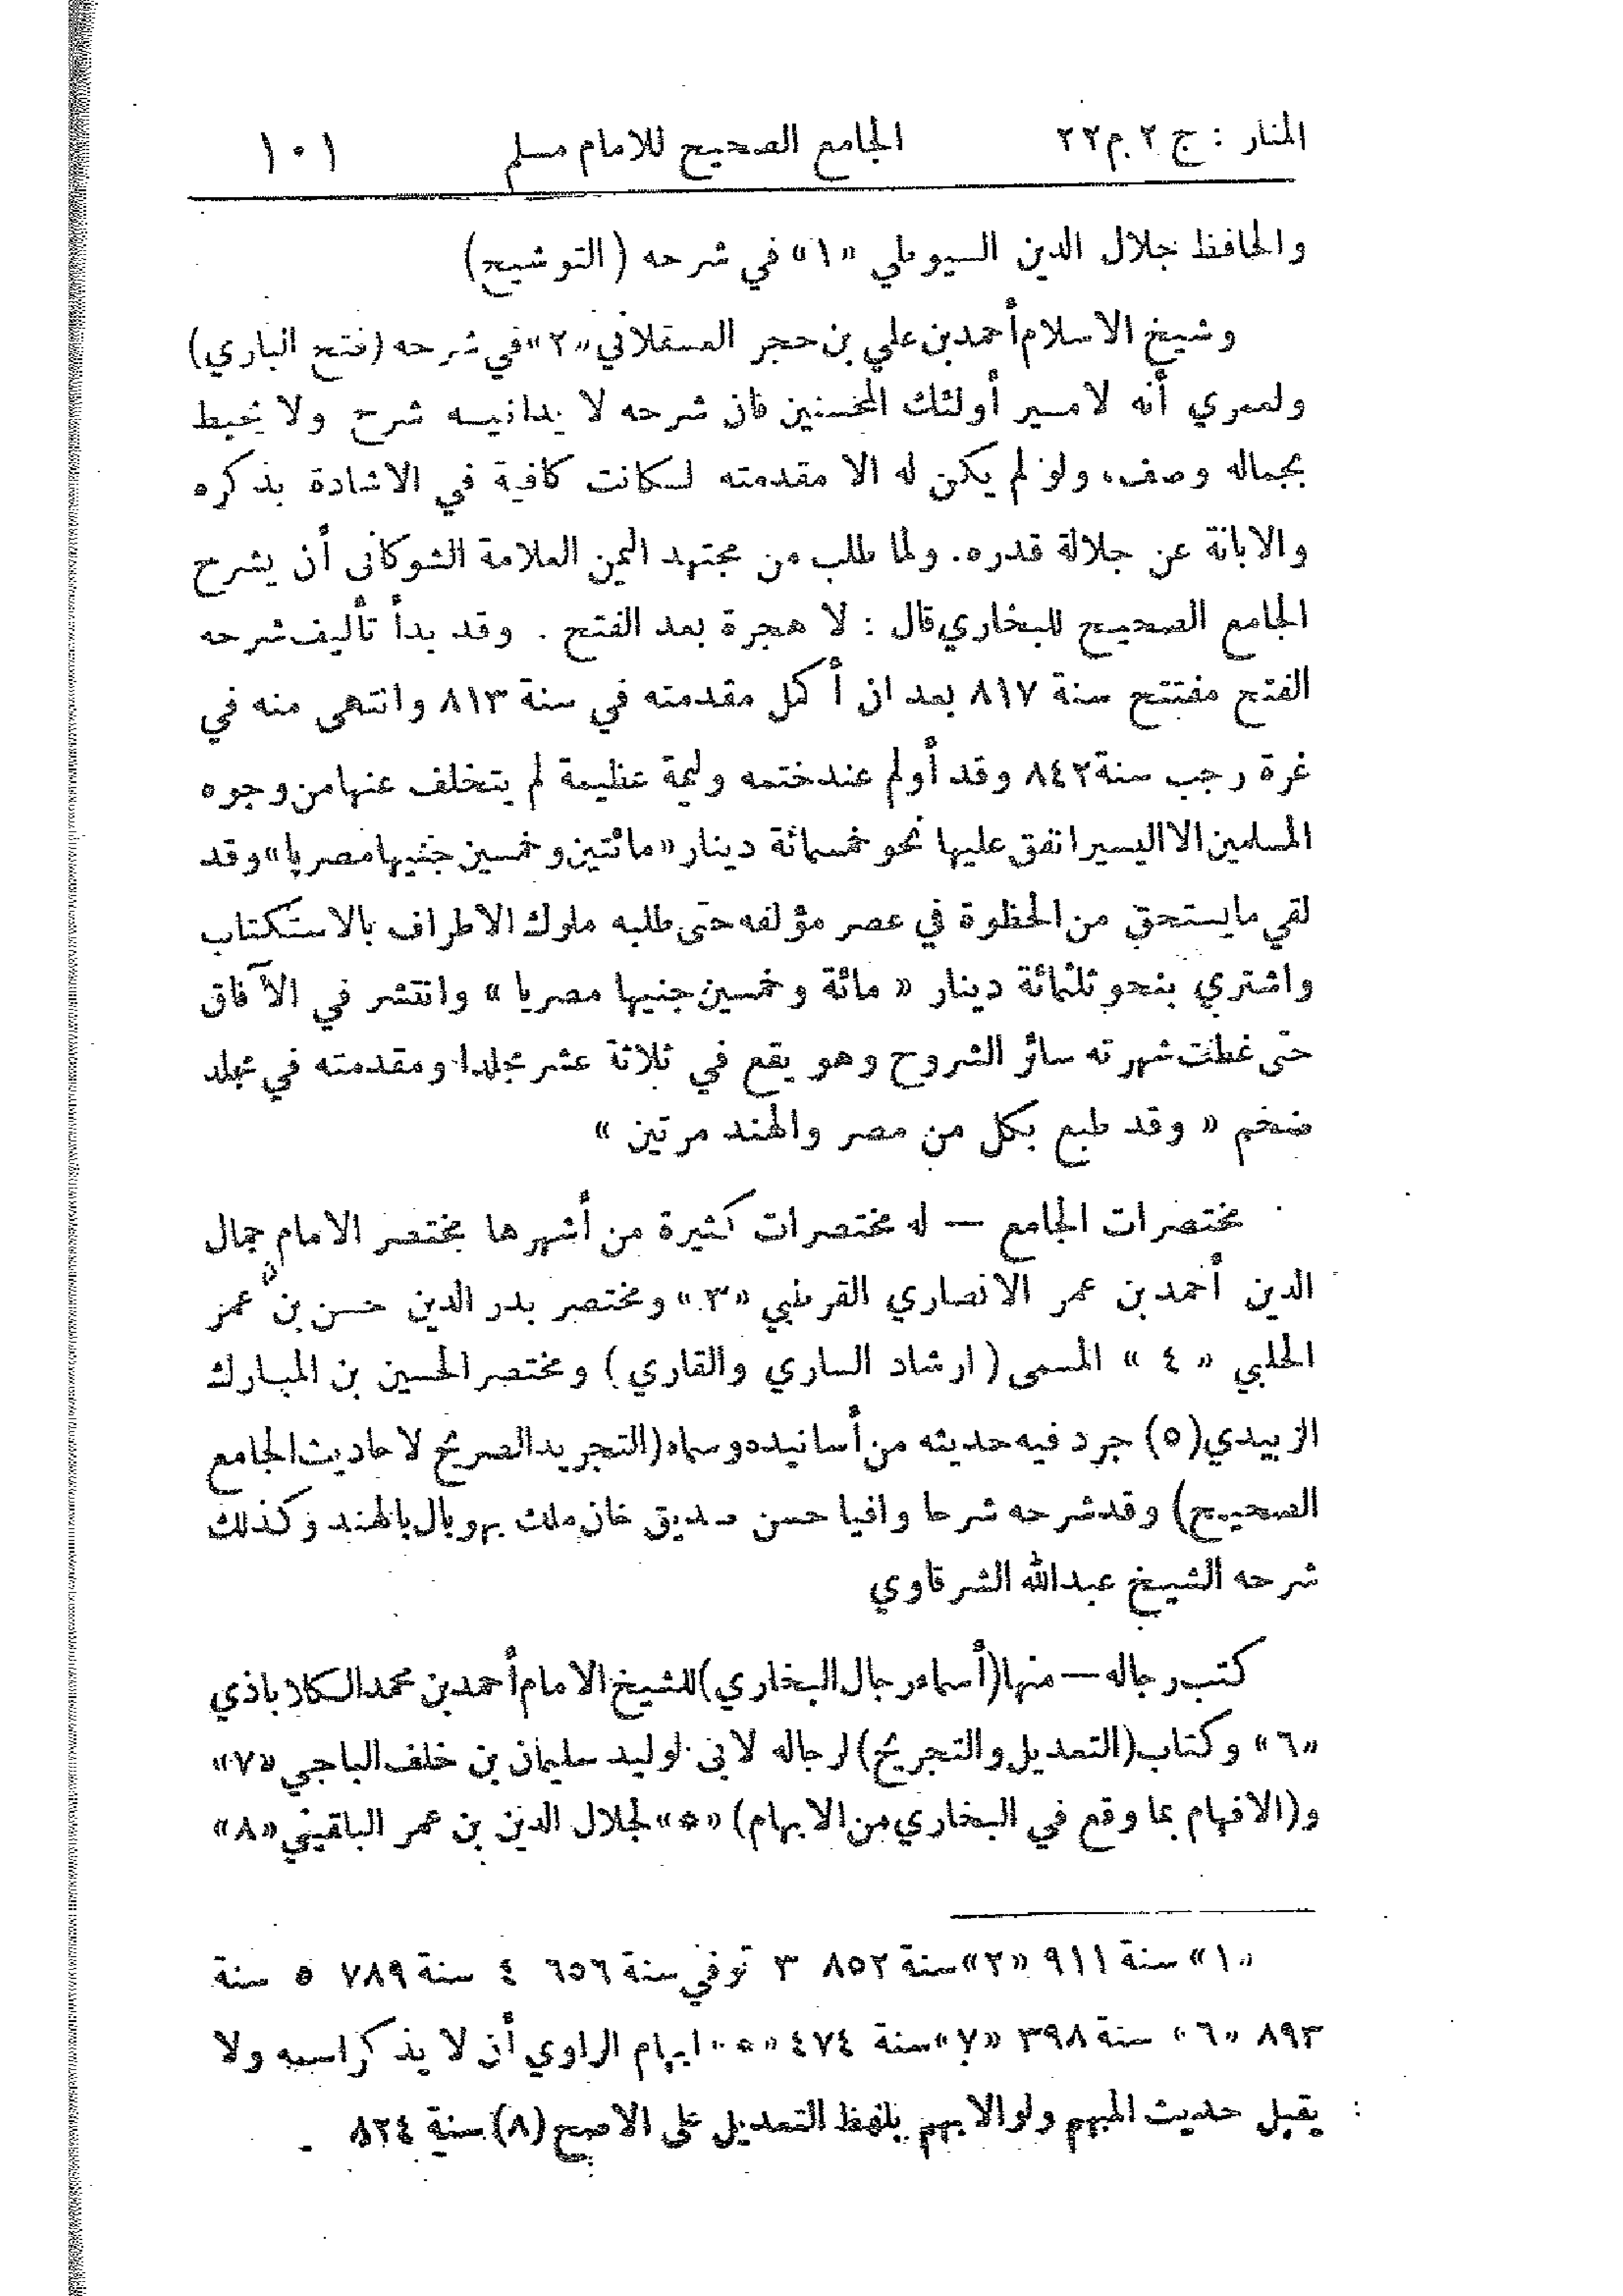 المنار : ج ٢ م ٢٢ الجامع الصحيح للامام مسلم ١٠١
والحافظ جلال الدين السيوطي «١» في شرحه (التوشيح)
وشيخ الاسلام أحمد بن علي بن حجر العسقلاني «٢» في شرحه (فتح الباري)
ولعمري أنه لامير أولئك المحسنين فان شرحه لا يدانيه شرح ولا يحيط
بجماله وصف، ولو لم يكن له الا مقدمته لكانت كافية في الاشادة بذكره
والابانة عن جلالة قدره. ولما طلب من مجتهد اليمن العلامة الشوكاني أن يشرح
الجامع الصحيح للبخاري قال : لا هجرة بعد الفتح . وقد بدأ تأليف شرحه
الفتح مفتتح سنة ٨١٧ بعد ان أكمل مقدمته في سنة ٨١٣ وانتهى منه في
غرة رجب سنة ٨٤٢ وقد أولم عند ختمه وليمة عظيمة لم يتخلف عنها من وجوه
المسلمين الا اليسير انفق عليها نحو خمسمائة دينار «مائتين وخمسين جنيها مصريا» وقد
لقي ما يستحق من الحظوة في عصر مؤلفه حتى طلبه ملوك الاطراف بالاستكتاب
واشتري بنحو ثلثمائة دينار « مائة وخمسين جنيها مصريا » وانتشر في الآفاق
حتى غطت شهرته سائر الشروح وهو يقع في ثلاثة عشر مجلدا ومقدمته في مجلد
ضخم « وقد طبع بكل من مصر والهند مرتين »
مختصرات الجامع — له مختصرات كثيرة من أشهرها مختصر الامام جمال
الدين أحمد بن عمر الانصاري القرطبي «٣» ومختصر بدر الدين حسن بن عمر
الحلبي « ٤ » المسمى ( ارشاد الساري والقاري ) ومختصر الحسين بن المبارك
الزبيدي (٥) جرد فيه حديثه من أسانيده وسماه (التجريد الصريح لاحاديث الجامع
الصحيح) وقد شرحه شرحا وافيا حسن صديق خان ملك بهوبال بالهند وكذلك
شرحه الشيخ عبد الله الشرقاوي
كتب رجاله — منها (أسماء رجال البخاري) للشيخ الامام أحمد بن محمد الكلاباذي
«٦» وكتاب (التعديل والتجريح) لرجاله لابي لوليد سليمان بن خلف الباجي «٧»
و(الافهام بما وقع في البخاري من الابهام) «*» لجلال الدين بن عمر البلقيني «٨»
«١» سنة ٩١١ «٢» سنة ٨٥٢ ٣ توفي سنة ٦٥٦ ٤ سنة ٧٨٩ ٥ سنة
٨٩٣ «٦» سنة ٣٩٨ «٧» سنة ٤٧٤ «*» ابهام الراوي أن لا يذكر اسمه ولا
يقبل حديث المبهم ولو الابهم بلفظ التعديل على الاصح (٨) سنة ٨٢٤